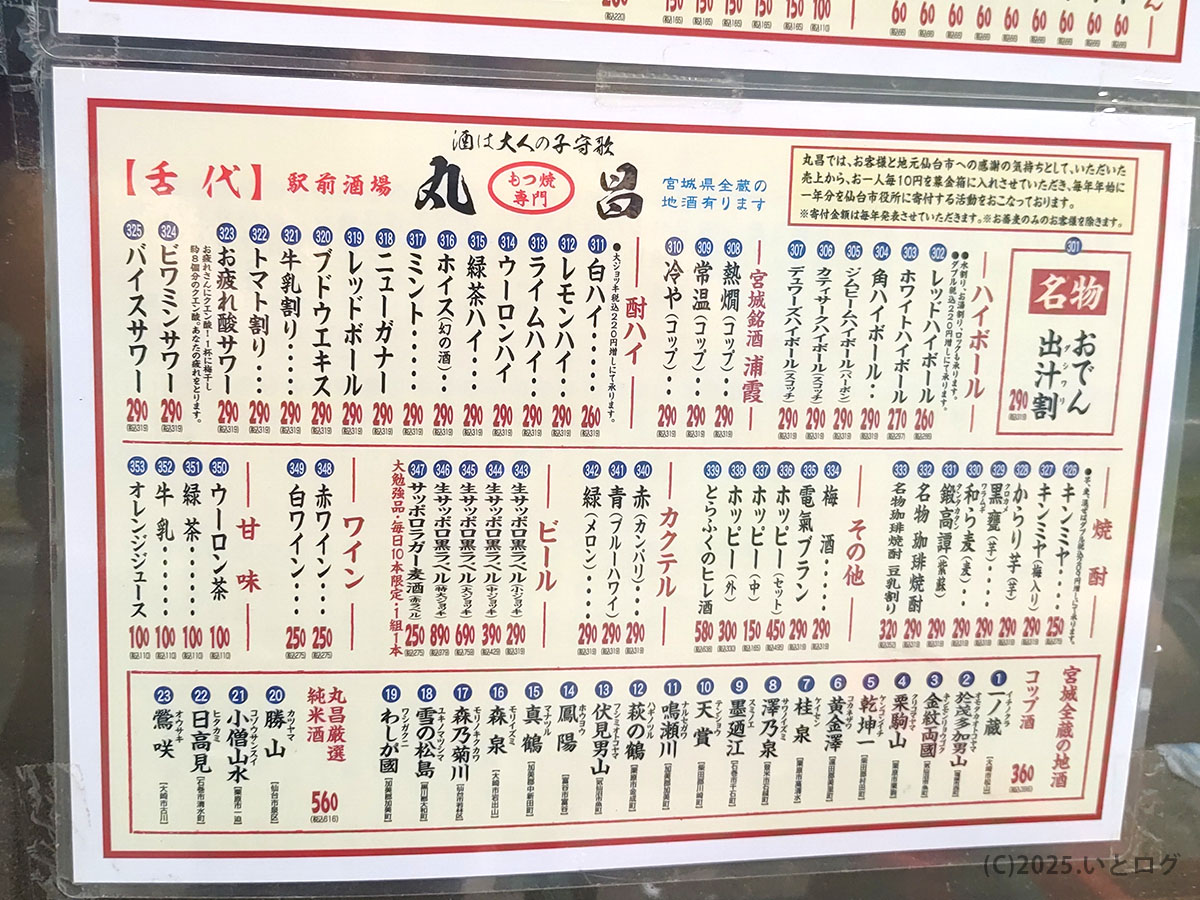 酒は大人の子守歌
【舌代】
駅前酒場
丸昌
もつ焼
専門
宮城県全蔵の
地酒有ります
丸昌では、お客様と地元仙台市への感謝の気持ちとして、いただいた
売上から、お一人毎10円を募金箱に入れさせていただき、毎年年始に
一年分を仙台市役所に寄付する活動をおこなっております。
※寄付金額は毎年発表させていただきます。※お蕎麦のみのお客様を除きます。
301
名物
おでん
出汁割
ダシワリ
290
ハイボール
●水割り、お湯割り、ロックも承ります。
●ダブル税込220円増しにて承ります。
302 レッドハイボール 260
303 ホワイトハイボール 270
304 角ハイボール・・ 290
305 ジムビームハイボール(バーボン) 290
306 カティサークハイボール(スコッチ) 290
307 デュワーズハイボール(スコッチ) 290
宮城銘酒 浦霞
308 熱燗(コップ)・・ 290
309 常温(コップ)・・ 290
310 冷や(コップ)・・ 290
酎ハイ
●大ジョッキ税込220円増しにて承ります。
311 白ハイ・・・・・ 260
312 レモンハイ・・ 290
313 ライムハイ・・ 290
314 ウーロンハイ 290
315 緑茶ハイ・・ 290
316 ホイス(幻の酒)・・ 290
317 ミント・・・・ 290
318 ニューガナー 290
319 レッドボール 290
320 ブドウエキス 290
321 牛乳割り・・・・ 290
322 トマト割り・・・ 290
323 お疲れ酸サワー 290
お疲れさんにクエン酸!1杯に梅干し
8個分のクエン酸。あなたの疲れをとります。
324 ビワミンサワー 290
325 バイスサワー 290
焼酎
326 キンミヤ・・・ 250
327 キンミヤ(梅入り) 290
328 からり芋(芋) 290
329 黒甕(芋)・・・ 290
クロカメ
330 和ら麦(麦)・・ 290
ワラムギ
331 鍛高譚(紫蘇) 290
タンタカタン
332 名物 珈琲焼酎 290
333 名物珈琲焼酎 豆乳割り 320
その他
334 梅酒・・・・ 290
335 電氣ブラン 290
336 ホッピー(セット) 450
337 ホッピー(中) 150
338 ホッピー(外) 300
339 とらふくのヒレ酒 580
カクテル
340 赤(カンパリ)・・ 290
341 青(ブルーハワイ) 290
342 緑(メロン)・・・ 290
ビール
343 生サッポロ黒ラベル(小ジョッキ) 290
344 生サッポロ黒ラベル(中ジョッキ) 390
345 生サッポロ黒ラベル(大ジョッキ) 690
346 生サッポロ黒ラベル(特大ジョッキ) 890
347 サッポロラガー麦酒(赤ラベル) 250
大勉強品・毎日10本限定・1組1本
ワイン
348 赤ワイン・・・ 250
349 白ワイン・・・ 250
甘味
350 ウーロン茶 100
351 緑茶・・・・ 100
352 牛乳・・・・・ 100
353 オレンジジュース 100
宮城全蔵の地酒
コップ酒 360
1 一ノ蔵
イチノクラ
2 於多加男山
3 金紋両國
4 栗駒山
クリコマヤマ
5 乾坤一
ケンコンイチ
6 黄金澤
コガネザワ
7 桂泉
ケイセン
8 澤乃泉
サワノイズミ
9 墨廼江
スミノエ
10 天賞
テンショウ
11 鳴瀬川
ナルセガワ
12 萩の鶴
ハギノツル
13 伏見男山
フシミオトコヤマ
14 鳳陽
ホウヨウ
15 真鶴
マナツル
16 森泉
モリイズミ
17 森乃菊川
モリノキクカワ
18 雪の松島
ユキノマツシマ
19 わしが國
ワシガクニ
丸昌厳選
純米酒 560
(税込616)
20 勝山
カツヤマ
[仙台市泉区]
21 小僧山水
コゾウサンスイ
[栗原市一迫]
22 日高見
ヒタカミ
[石巻市清水町]
23 鶯咲
オウサキ
[大崎市古川]
(C)2025.いとログ